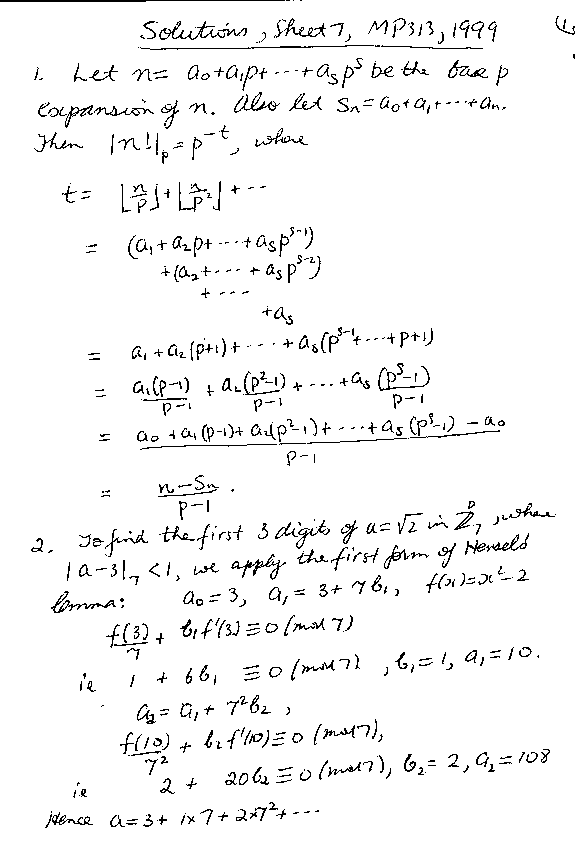 Solutions, Sheet 7, MP313, 1999 (1)
1. Let n = a₀+a₁p+ --- +aₛpˢ be the base p
expansion of n. Also let Sₙ = a₀+a₁+ --- +aₙ.
Then |n!|ₚ = p⁻ᵗ, where
t = ⌊n/p⌋ + ⌊n/p²⌋ + --
= (a₁ + a₂p + --- + aₛpˢ⁻¹)
+ (a₂ + --- + aₛpˢ⁻²)
+ ---
+aₛ
= a₁ + a₂(p+1) + --- + aₛ(pˢ⁻¹+ --- +p+1)
= a₁(p-1)/(p-1) + a₂(p²-1)/(p-1) + --- + aₛ(pˢ-1)/(p-1)
= (a₀ + a₁(p-1) + a₂(p²-1) + --- + aₛ(pˢ-1) - a₀)/(p-1)
= (n-Sₙ)/(p-1).
2. To find the first 3 digits of a=√2 in ℤ₇, where
|a-3|₇ < 1, we apply the first form of Hensel's
lemma: a₀=3, a₁ = 3+7b₁, f(x)=x²-2
f(3)/7 + b₁f'(3) ≡ 0 (mod 7)
ie 1 + 6b₁ ≡ 0 (mod 7), b₁=1, a₁=10.
a₂ = a₁ + 7²b₂,
f(10)/7² + b₂f'(10) ≡ 0 (mod 7),
ie 2 + 20b₂ ≡ 0 (mod 7), b₂ = 2, a₂ = 108
Hence a = 3 + 1×7 + 2×7² + ---